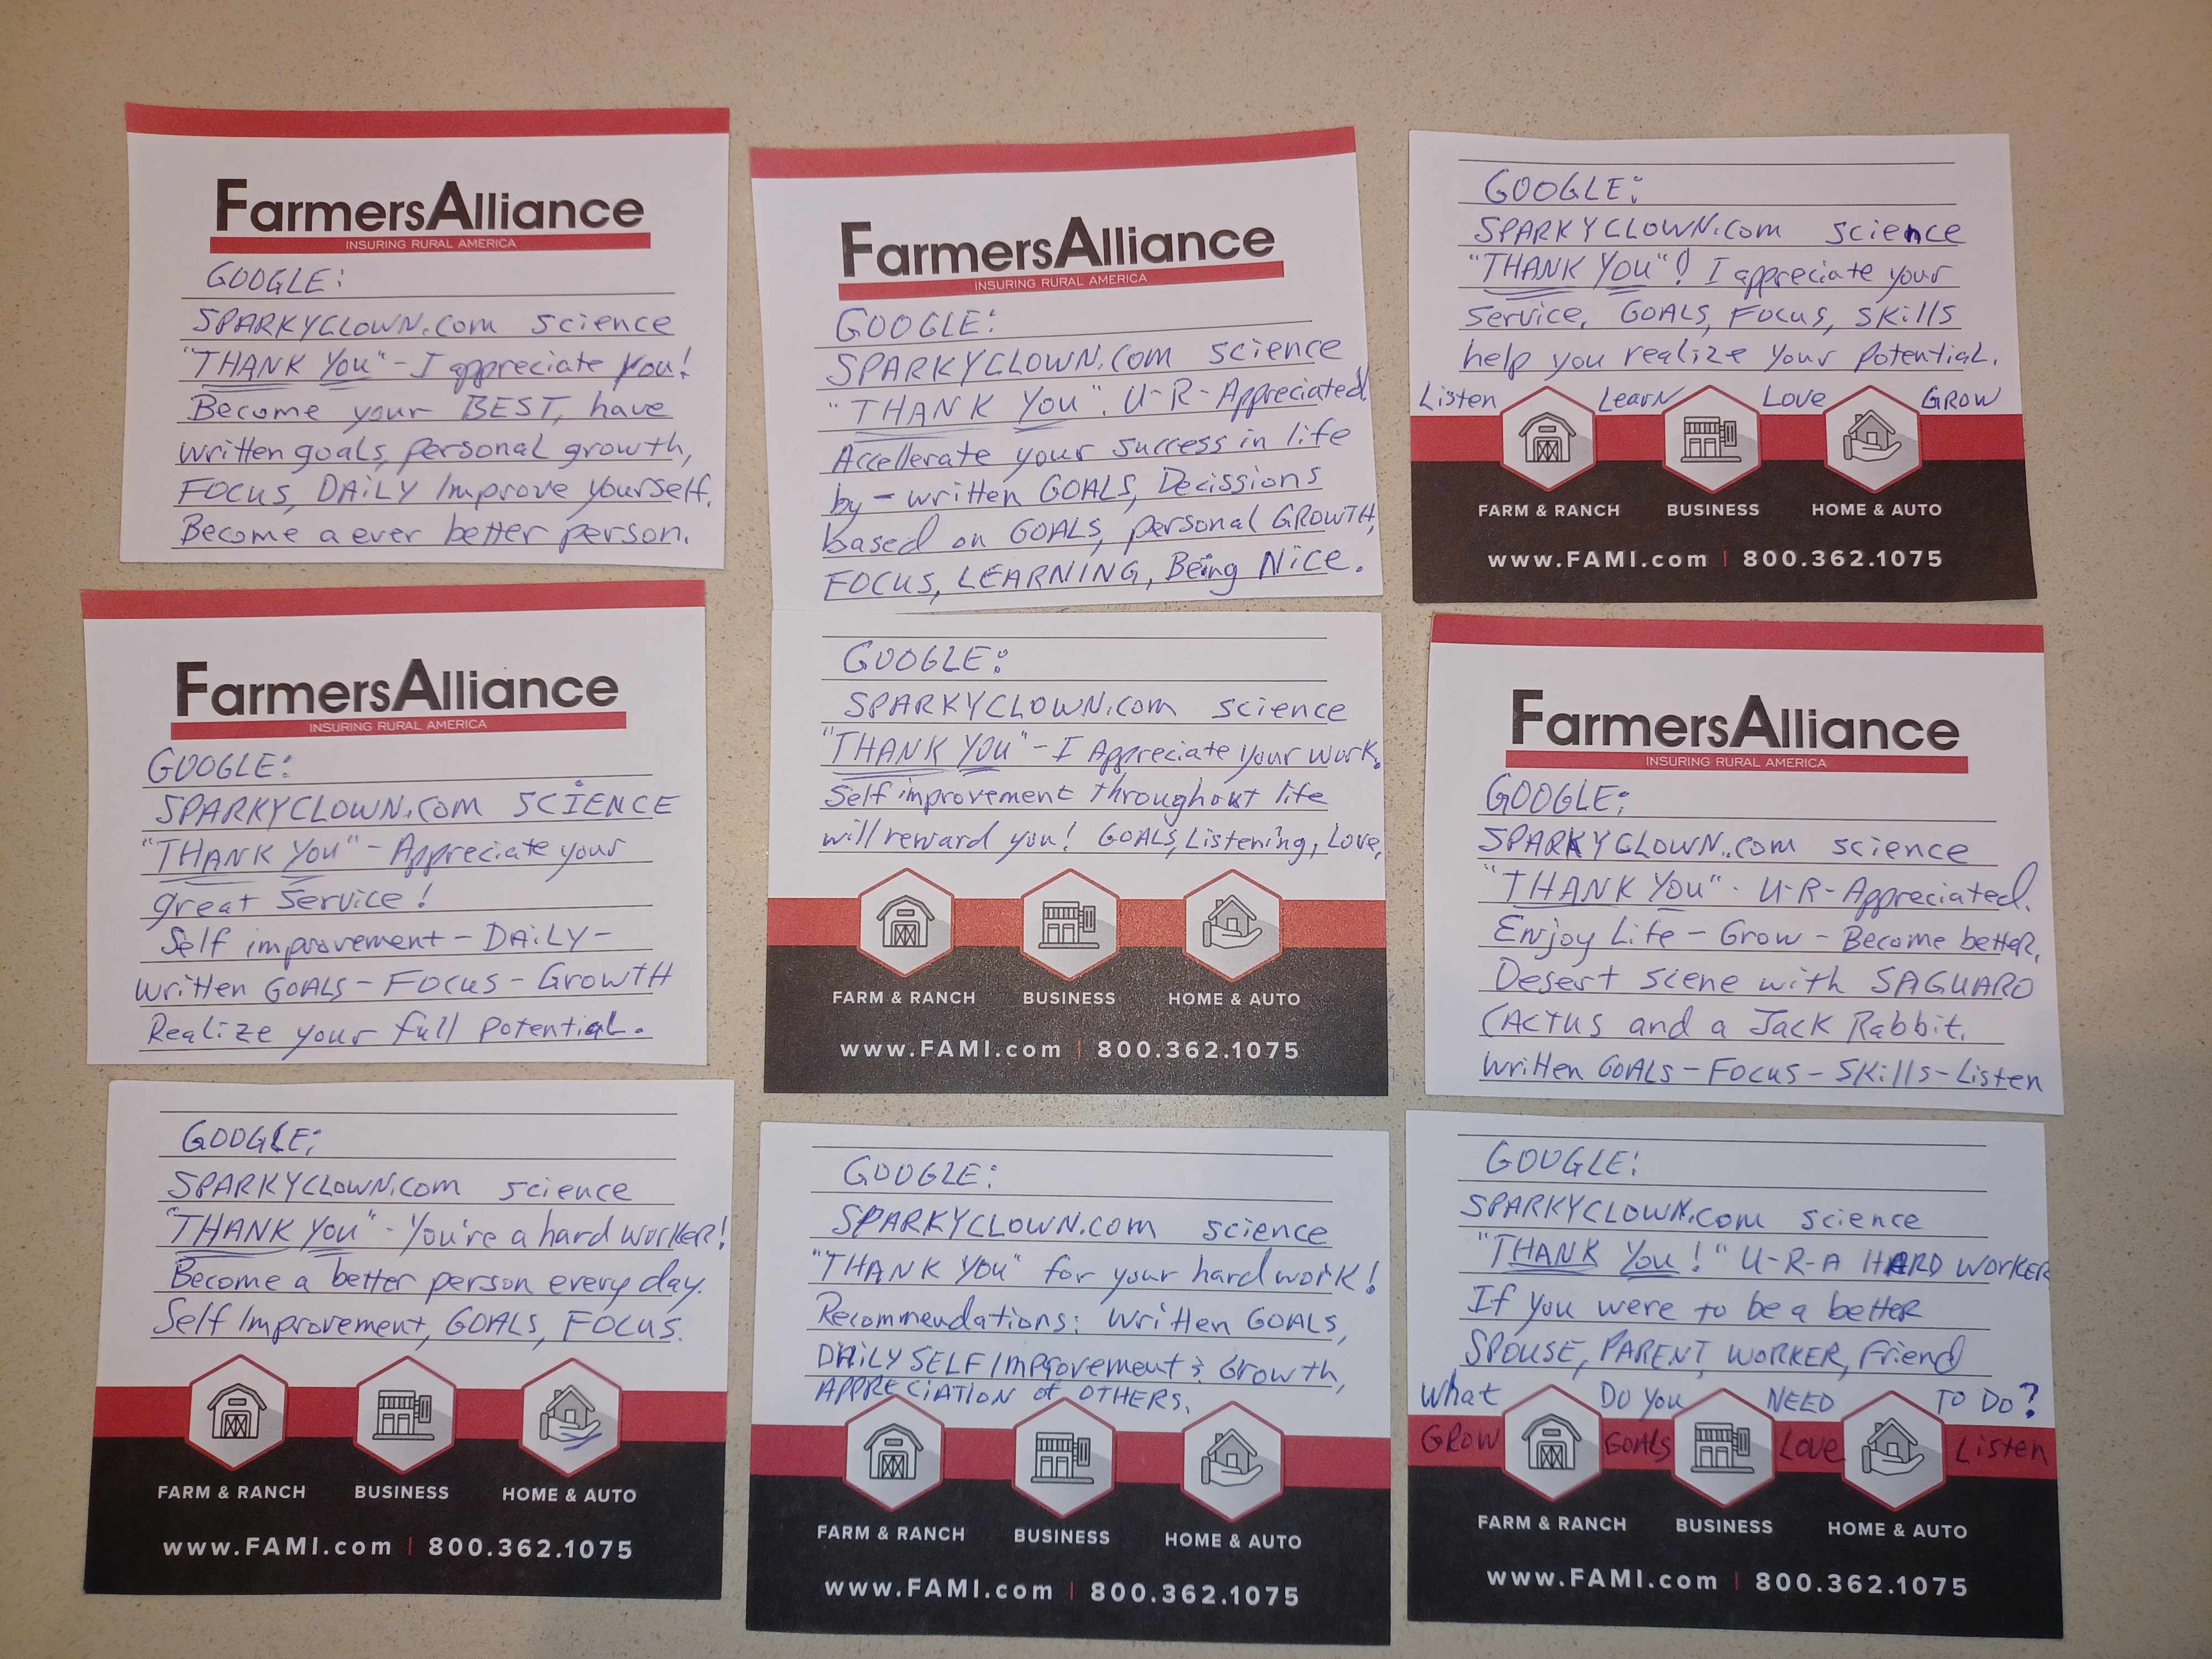 FarmersAlliance
INSURING RURAL AMERICA
GOOGLE:
SPARKYCLOWN.COM science
"THANK YOU" - I appreciate you!
Become your BEST, have
written goals, personal growth,
FOCUS, DAILY Improve yourself.
Become a ever better person.
FarmersAlliance
INSURING RURAL AMERICA
GOOGLE:
SPARKYCLOWN.COM science
"THANK YOU". U-R-Appreciated.
Accellerate your success in life
by - written GOALS, Decissions
based on GOALS, personal GROWTH,
FOCUS, LEARNING, Being Nice.
GOOGLE:
SPARKYCLOWN.COM science
"THANK YOU"! I appreciate your
service. GOALS, FOCUS, SKills
help you realize your potential.
Listen Learn Love GROW
FARM & RANCH BUSINESS HOME & AUTO
www.FAMI.com | 800.362.1075
FarmersAlliance
INSURING RURAL AMERICA
GOOGLE:
SPARKYCLOWN.COM SCIENCE
"THANK YOU" - Appreciate your
great service!
Self improvement - DAILY -
written GOALS - FOCUS - GROWTH
Realize your full potential.
GOOGLE:
SPARKYCLOWN.COM science
"THANK YOU" - I Appreciate your work.
Self improvement throughout life
will reward you! GOALS, Listening, Love,
FARM & RANCH BUSINESS HOME & AUTO
www.FAMI.com | 800.362.1075
FarmersAlliance
INSURING RURAL AMERICA
GOOGLE:
SPARKYCLOWN..COM science
"THANK YOU" - U-R-Appreciated.
Enjoy Life - Grow - Become better,
Desert scene with SAGUARO
CACTUS and a Jack Rabbit.
written GOALS - FOCUS - SKills - Listen
GOOGLE:
SPARKYCLOWN.COM science
"THANK YOU" - You're a hard worker!
Become a better person every day.
Self Improvement, GOALS, FOCUS.
FARM & RANCH BUSINESS HOME & AUTO
www.FAMI.com | 800.362.1075
GOOGLE:
SPARKYCLOWN.COM science
"THANK YOU" for your hard work!
Recommendations: written GOALS,
DAILY SELF Improvement & Growth,
APPRECIATION of OTHERS.
FARM & RANCH BUSINESS HOME & AUTO
www.FAMI.com | 800.362.1075
GOOGLE:
SPARKYCLOWN.COM science
"THANK YOU!" U-R-A HARD WORKER
If you were to be a better
SPOUSE, PARENT, WORKER, Friend
What DO YOU NEED TO DO?
GROW GOALS LOVE Listen
FARM & RANCH BUSINESS HOME & AUTO
www.FAMI.com | 800.362.1075